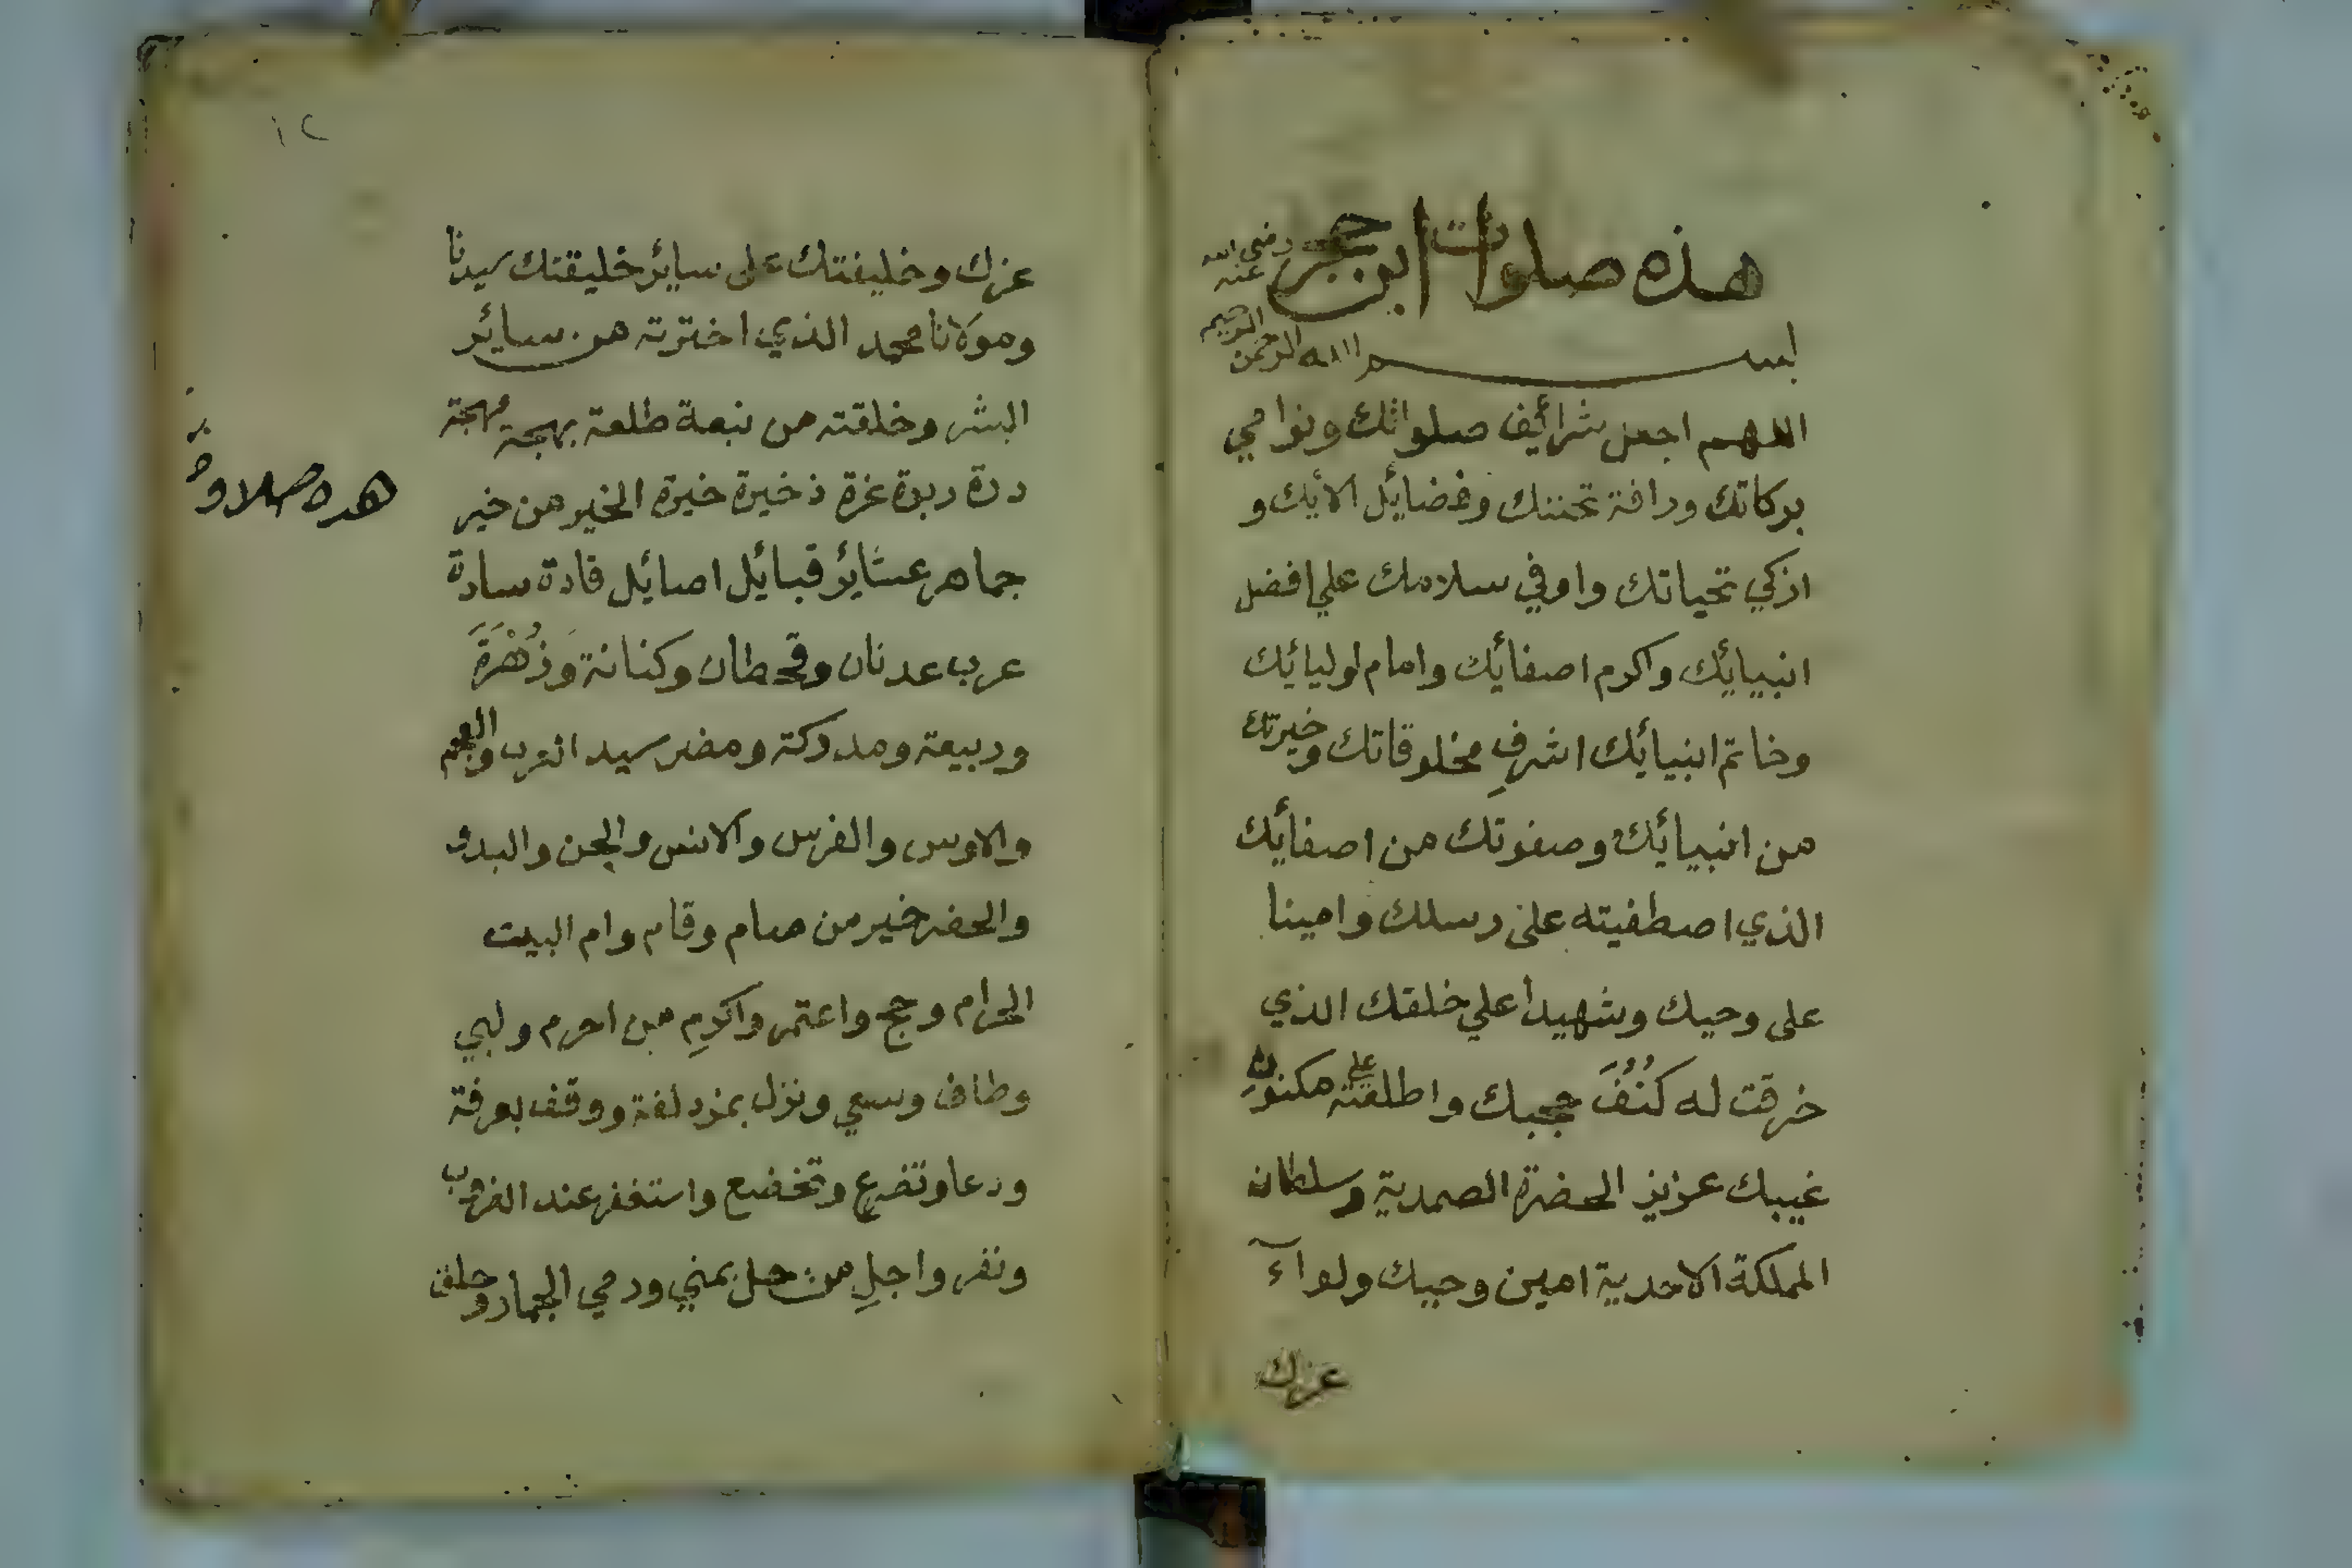 هذه صلوات ابن حجر رضي الله عنه
بسم الله الرحمن الرحيم
اللهم اجعل شرائف صلواتك ونوامي
بركاتك ورافة تحننك وفضايل الائك و
ازكي تحياتك واوفي سلامك علي افضل
انبيائك واكرم اصفائك وامام اوليائك
وخاتم انبيائك اشرفِ مخلوقاتك وخيرتك
من انبيائك وصفوتك من اصفائك
الذي اصطفيته على رسلك وامينا
على وحيك وشهيداً علي خلقك الذي
خرقت له كُنُفَ حجبك واطلعته علي مكنونِ
غيبك عزيز الحضرة الصمدية وسلطان
المملكة الاحدية امين وحيك ولوآء
عزك
١٢
عزك وخليفتك على ساير خليقتك سيدنا
ومولانا محمد الذي اخترته من سائر
البشر وخلقته من نبعة طلعة بهجة مهجة
درة دبدة غرة ذخيرة خيرة الخير من خير
جماهر عشاير قبائل اصائل قادة سادة
عرب عدنان وقحطان وكنانة وَزُهْرَةَ
وربيعة ومدركة ومضر سيد العرب والعجم
والاوس والفرس والانس والجن والبدو
والحضر خير من صام وقام وام البيت
الحرام وحج واعتمر واكرمِ من احرم ولبي
وطاف وسعي ونزل بمزدلفة ووقف بعرفة
ودعا وتضرع وتخضع واستغفر عند الغروب
ونفر واجلِ من حل بمني ورمي الجمار وحلق
هده صلاوة